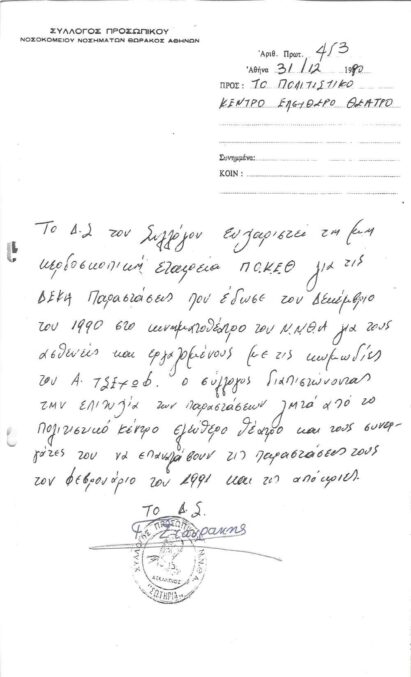 ΣΥΛΛΟΓΟΣ ΠΡΟΣΩΠΙΚΟΥ
ΝΟΣΟΚΟΜΕΙΟΥ ΝΟΣΗΜΑΤΩΝ ΘΩΡΑΚΟΣ ΑΘΗΝΩΝ
Αριθ. Πρωτ. 453
Αθήνα 31/12 1990
ΠΡΟΣ: ΤΟ ΠΟΛΙΤΙΣΤΙΚΟ
ΚΕΝΤΡΟ ΕΛΕΥΘΕΡΟ ΘΕΑΤΡΟ
Συνημμένα:
ΚΟΙΝ:
Το Δ.Σ του Συλλόγου Ευχαριστεί τη μη
κερδοσκοπική εταιρεία Π.Κ.ΕΘ για τις
ΔΕΚΑ Παραστάσεις που έδωσε τον Δεκέμβριο
του 1990 στο κινηματοθέατρο του Ν.Ν.Θ.Α για τους
ασθενείς και εργαζομένους με τις κωμωδίες
του Α. ΤΣΕΧΩΦ. Ο σύλλογος διαπιστώνοντας
την επιτυχία των παραστάσεων ζητά από το
Πολιτιστικό κέντρο ελεύθερο θέατρο και τους συνερ-
γάτες του να επαναλάβουν τις παραστάσεις τους
τον Φεβρουάριο του 1991 και τις απόκριες.
ΤΟ Δ.Σ.
Σταυράκης
ΣΥΛΛΟΓΟΣ ΠΡΟΣΩΠΙΚΟΥ Ν.Ν.Θ.Α.
"ΣΩΤΗΡΙΑ"